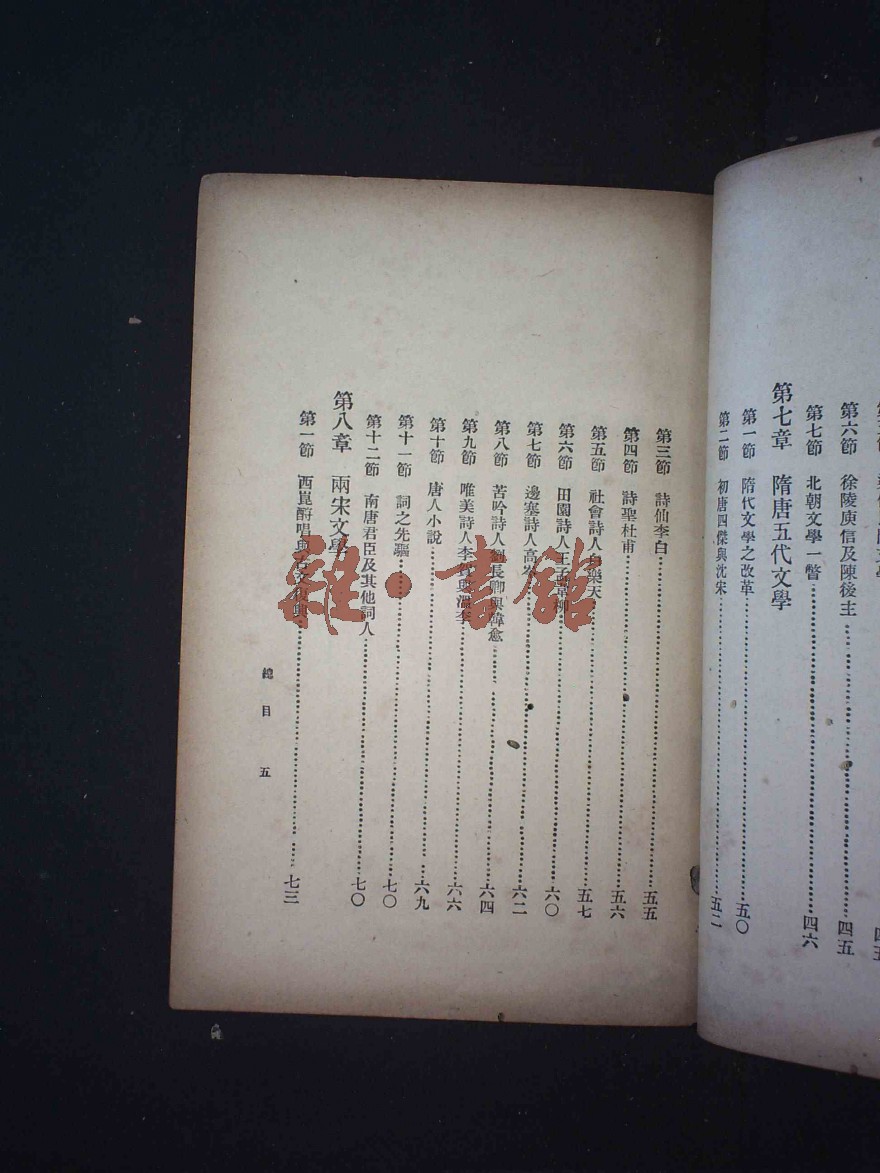 第六節 徐陵庾信及陳後主 四五
第七節 北朝文學一瞥 四六
第七章 隋唐五代文學
第一節 隋代文學之改革 五〇
第二節 初唐四傑與沈宋 五二
第三節 詩仙李白 五五
第四節 詩聖杜甫 五六
第五節 社會詩人白樂天 五七
第六節 田園詩人王孟韋柳 六〇
第七節 邊塞詩人高岑 六二
第八節 苦吟詩人劉長卿與韓愈 六四
第九節 唯美詩人李賀與溫李 六六
第十節 唐人小說 六九
第十一節 詞之先驅 七〇
第十二節 南唐君臣及其他詞人 七〇
第八章 兩宋文學
第一節 西崑酧唱與古文復興 七三
總目 五
雜·書館